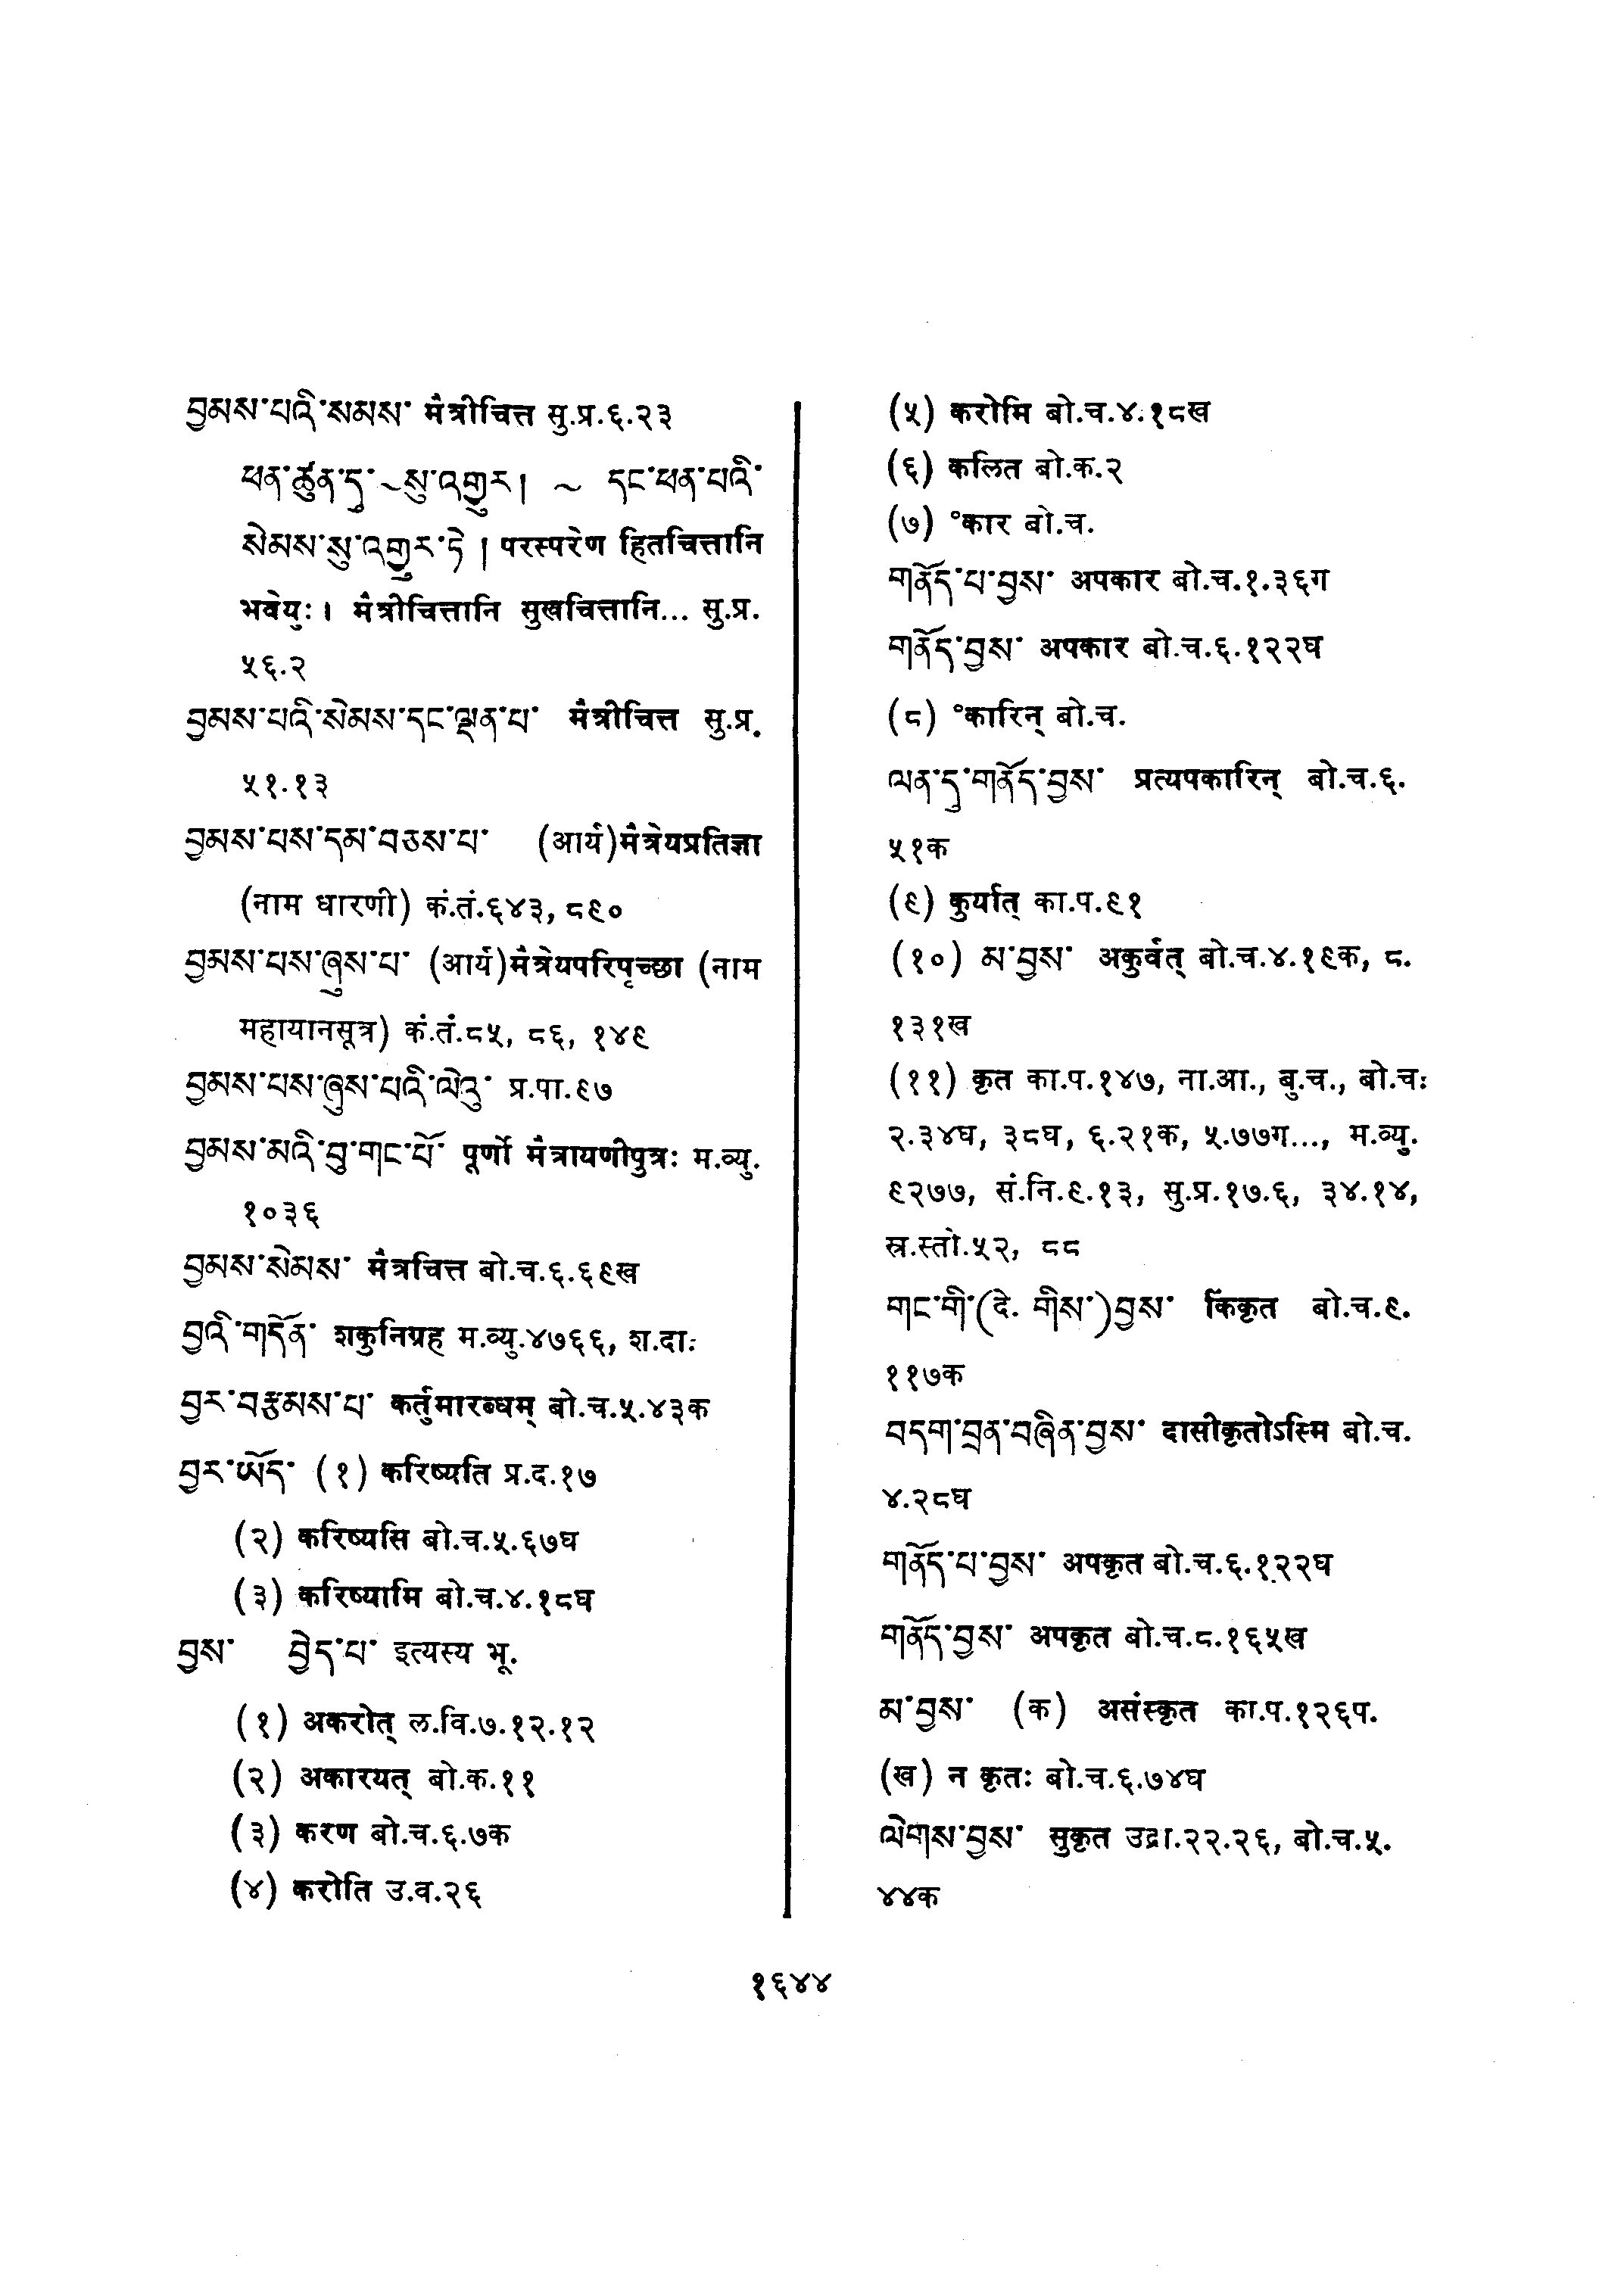 བྱམས་པའི་སམས་ मैत्रीचित्त सु.प्र.६.२३
ཕན་ཚུན་དུ་ ~སུ་འགྱུར། ~ དང་ཕན་པའི་
སེམས་སུ་འགྱུར་ཏེ། परस्परेण हितचित्तानि
भवेयुः। मैत्रीचित्तानि सुखचित्तानि... सु.प्र.
५६.२
བྱམས་པའི་སེམས་དང་ལྡན་པ་ मैत्रीचित्त सु.प्र.
५१.१३
བྱམས་པས་དམ་བཅས་པ་ (आर्य)मैत्रेयप्रतिज्ञा
(नाम धारणी) कं.तं.६४३, ८९०
བྱམས་པས་ཞུས་པ་ (आर्य)मैत्रेयपरिपृच्छा (नाम
महायानसूत्र) कं.तं.८५, ८६, १४९
བྱམས་པས་ཞུས་པའི་ལེའུ་ प्र.पा.९७
བྱམས་མའི་བུ་གང་པོ་ पूर्णो मैत्रायणीपुत्रः म.व्यु.
१०३६
བྱམས་སེམས་ मैत्रचित्त बो.च.६.६९ख
བྱའི་གདོན་ शकुनिग्रह म.व्यु.४७६६, श.दाः
བྱར་བརྩམས་པ་ कर्तुमारब्धम् बो.च.५.४३क
བྱར་ཡོད་ (१) करिष्यति प्र.द.१७
(२) करिष्यसि बो.च.५.६७घ
(३) करिष्यामि बो.च.४.१८घ
བྱས་ བྱེད་པ་ इत्यस्य भू.
(१) अकरोत् ल.वि.७.१२.१२
(२) अकारयत् बो.क.११
(३) करण बो.च.६.७क
(४) करोति उ.व.२६
(५) करोमि बो.च.४.१८ख
(६) कलित बो.क.२
(७) °कार बो.च.
གནོད་པ་བྱས་ अपकार बो.च.१.३६ग
གནོད་བྱས་ अपकार बो.च.६.१२२घ
(८) °कारिन् बो.च.
ལན་དུ་གནོད་བྱས་ प्रत्यपकारिन् बो.च.६.
५१क
(९) कुर्यात् का.प.९१
(१०) མ་བྱས་ अकुर्वत् बो.च.४.१९क, ८.
१३१ख
(११) कृत का.प.१४७, ना.आ., बु.च., बो.चः
२.३४घ, ३८घ, ६.२१क, ५.७७ग..., म.व्यु.
९२७७, सं.नि.९.१३, सु.प्र.१७.६, ३४.१४,
स्र.स्तो.५२, ८८
གང་གི་(दे. གིས་)བྱས་ किंकृत बो.च.९.
११७क
བདག་བྲན་བཞིན་བྱས་ दासीकृतोऽस्मि बो.च.
४.२८घ
གནོད་པ་བྱས་ अपकृत बो.च.६.१२२घ
གནོད་བྱས་ अपकृत बो.च.८.१६५ख
མ་བྱས་ (क) असंस्कृत का.प.१२६प.
(ख) न कृतः बो.च.६.७४घ
ལེགས་བྱས་ सुकृत उद्रा.२२.२६, बो.च.५.
४४क
१६४४